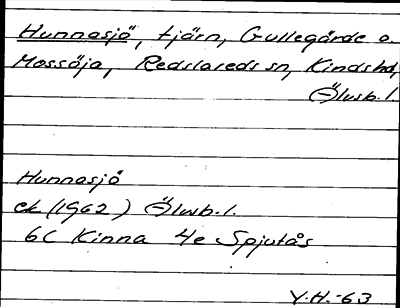 Hunnasjö, tjärn, Gullegärde o.
Mossöja, Redslareds sn, Kinds hd,
Älvsb. l.
Hunnasjö
ek (1962) Älvsb. l.
6C Kinna 4e Spjutås
Y.H.-63